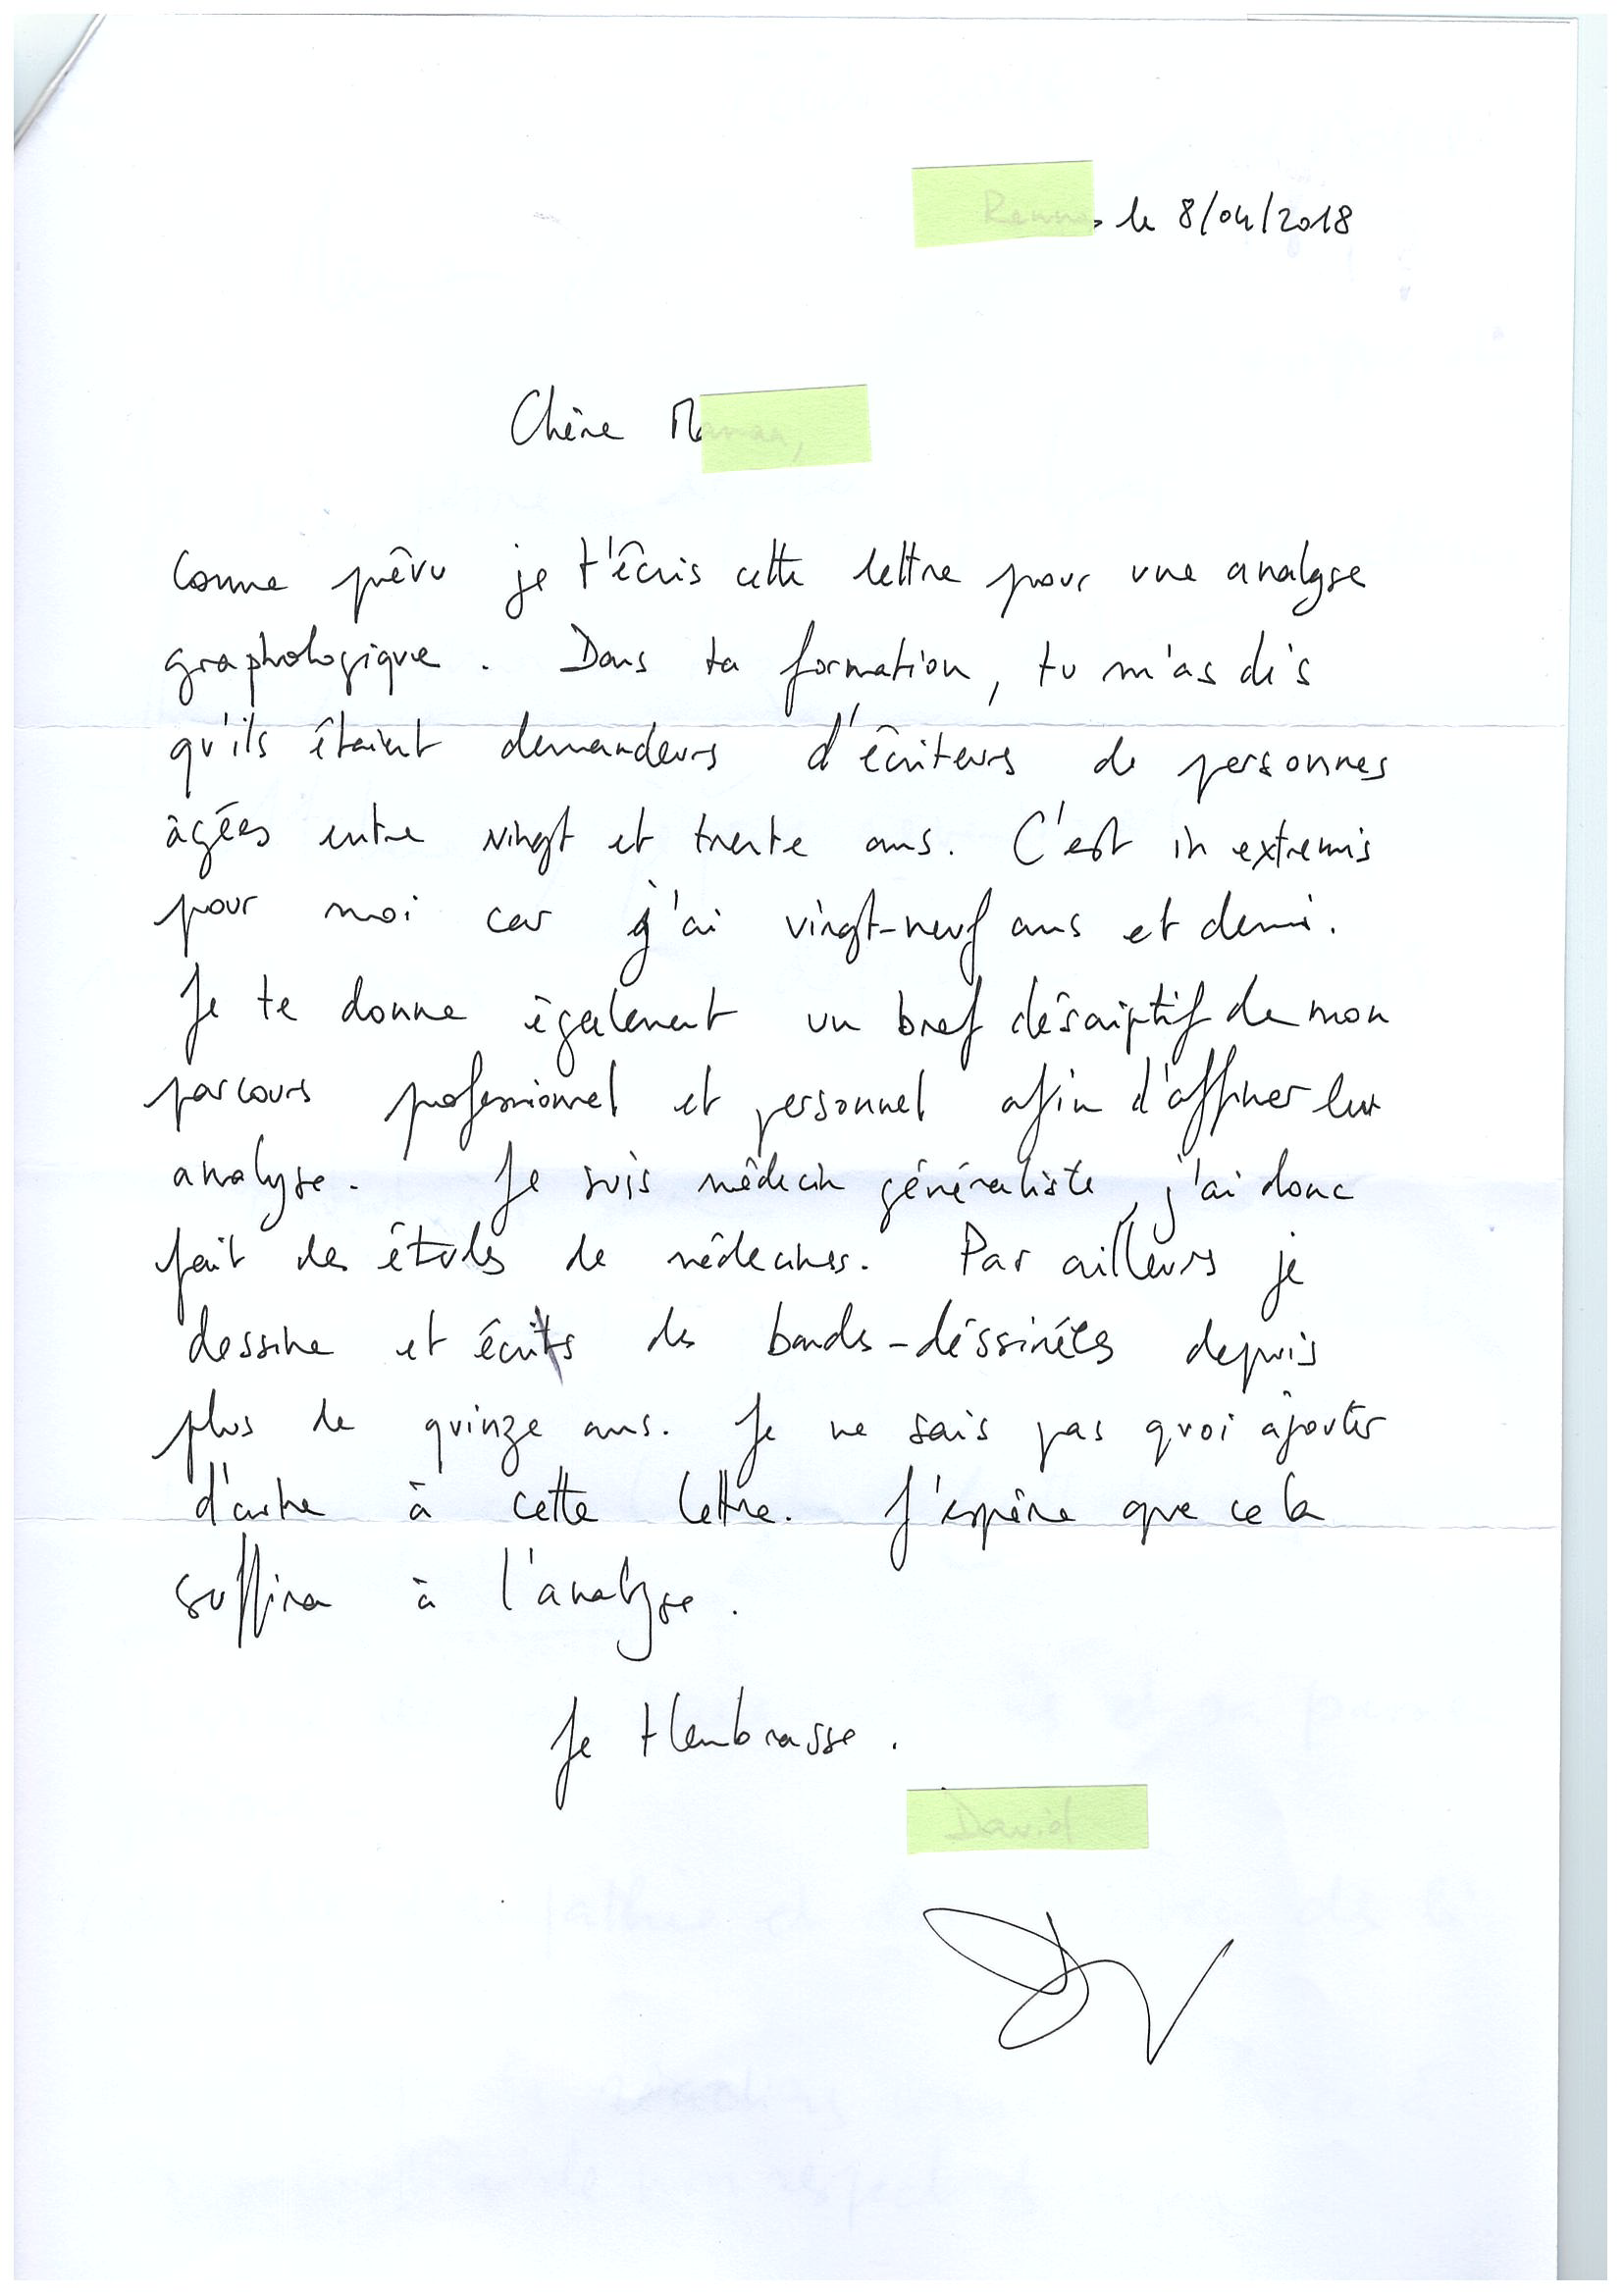 le 8/04/2018
Chère
Comme prévu je t'écris cette lettre pour une analyse
graphologique. Dans ta formation, tu m'as dis
qu'ils étaient demandeurs d'écritures de personnes
âgées entre vingt et trente ans. C'est in extremis
pour moi car j'ai vingt-neuf ans et demi.
Je te donne également un bref déscriptif de mon
parcours professionnel et personnel afin d'affiner leur
analyse. Je suis médecin généraliste, j'ai donc
fait des études de médecines. Par ailleurs je
dessine et écris des bandes-déssinées depuis
plus de quinze ans. Je ne sais pas quoi ajouter
d'autre à cette lettre. J'espère que cela
suffira à l'analyse.
Je t'embrasse.